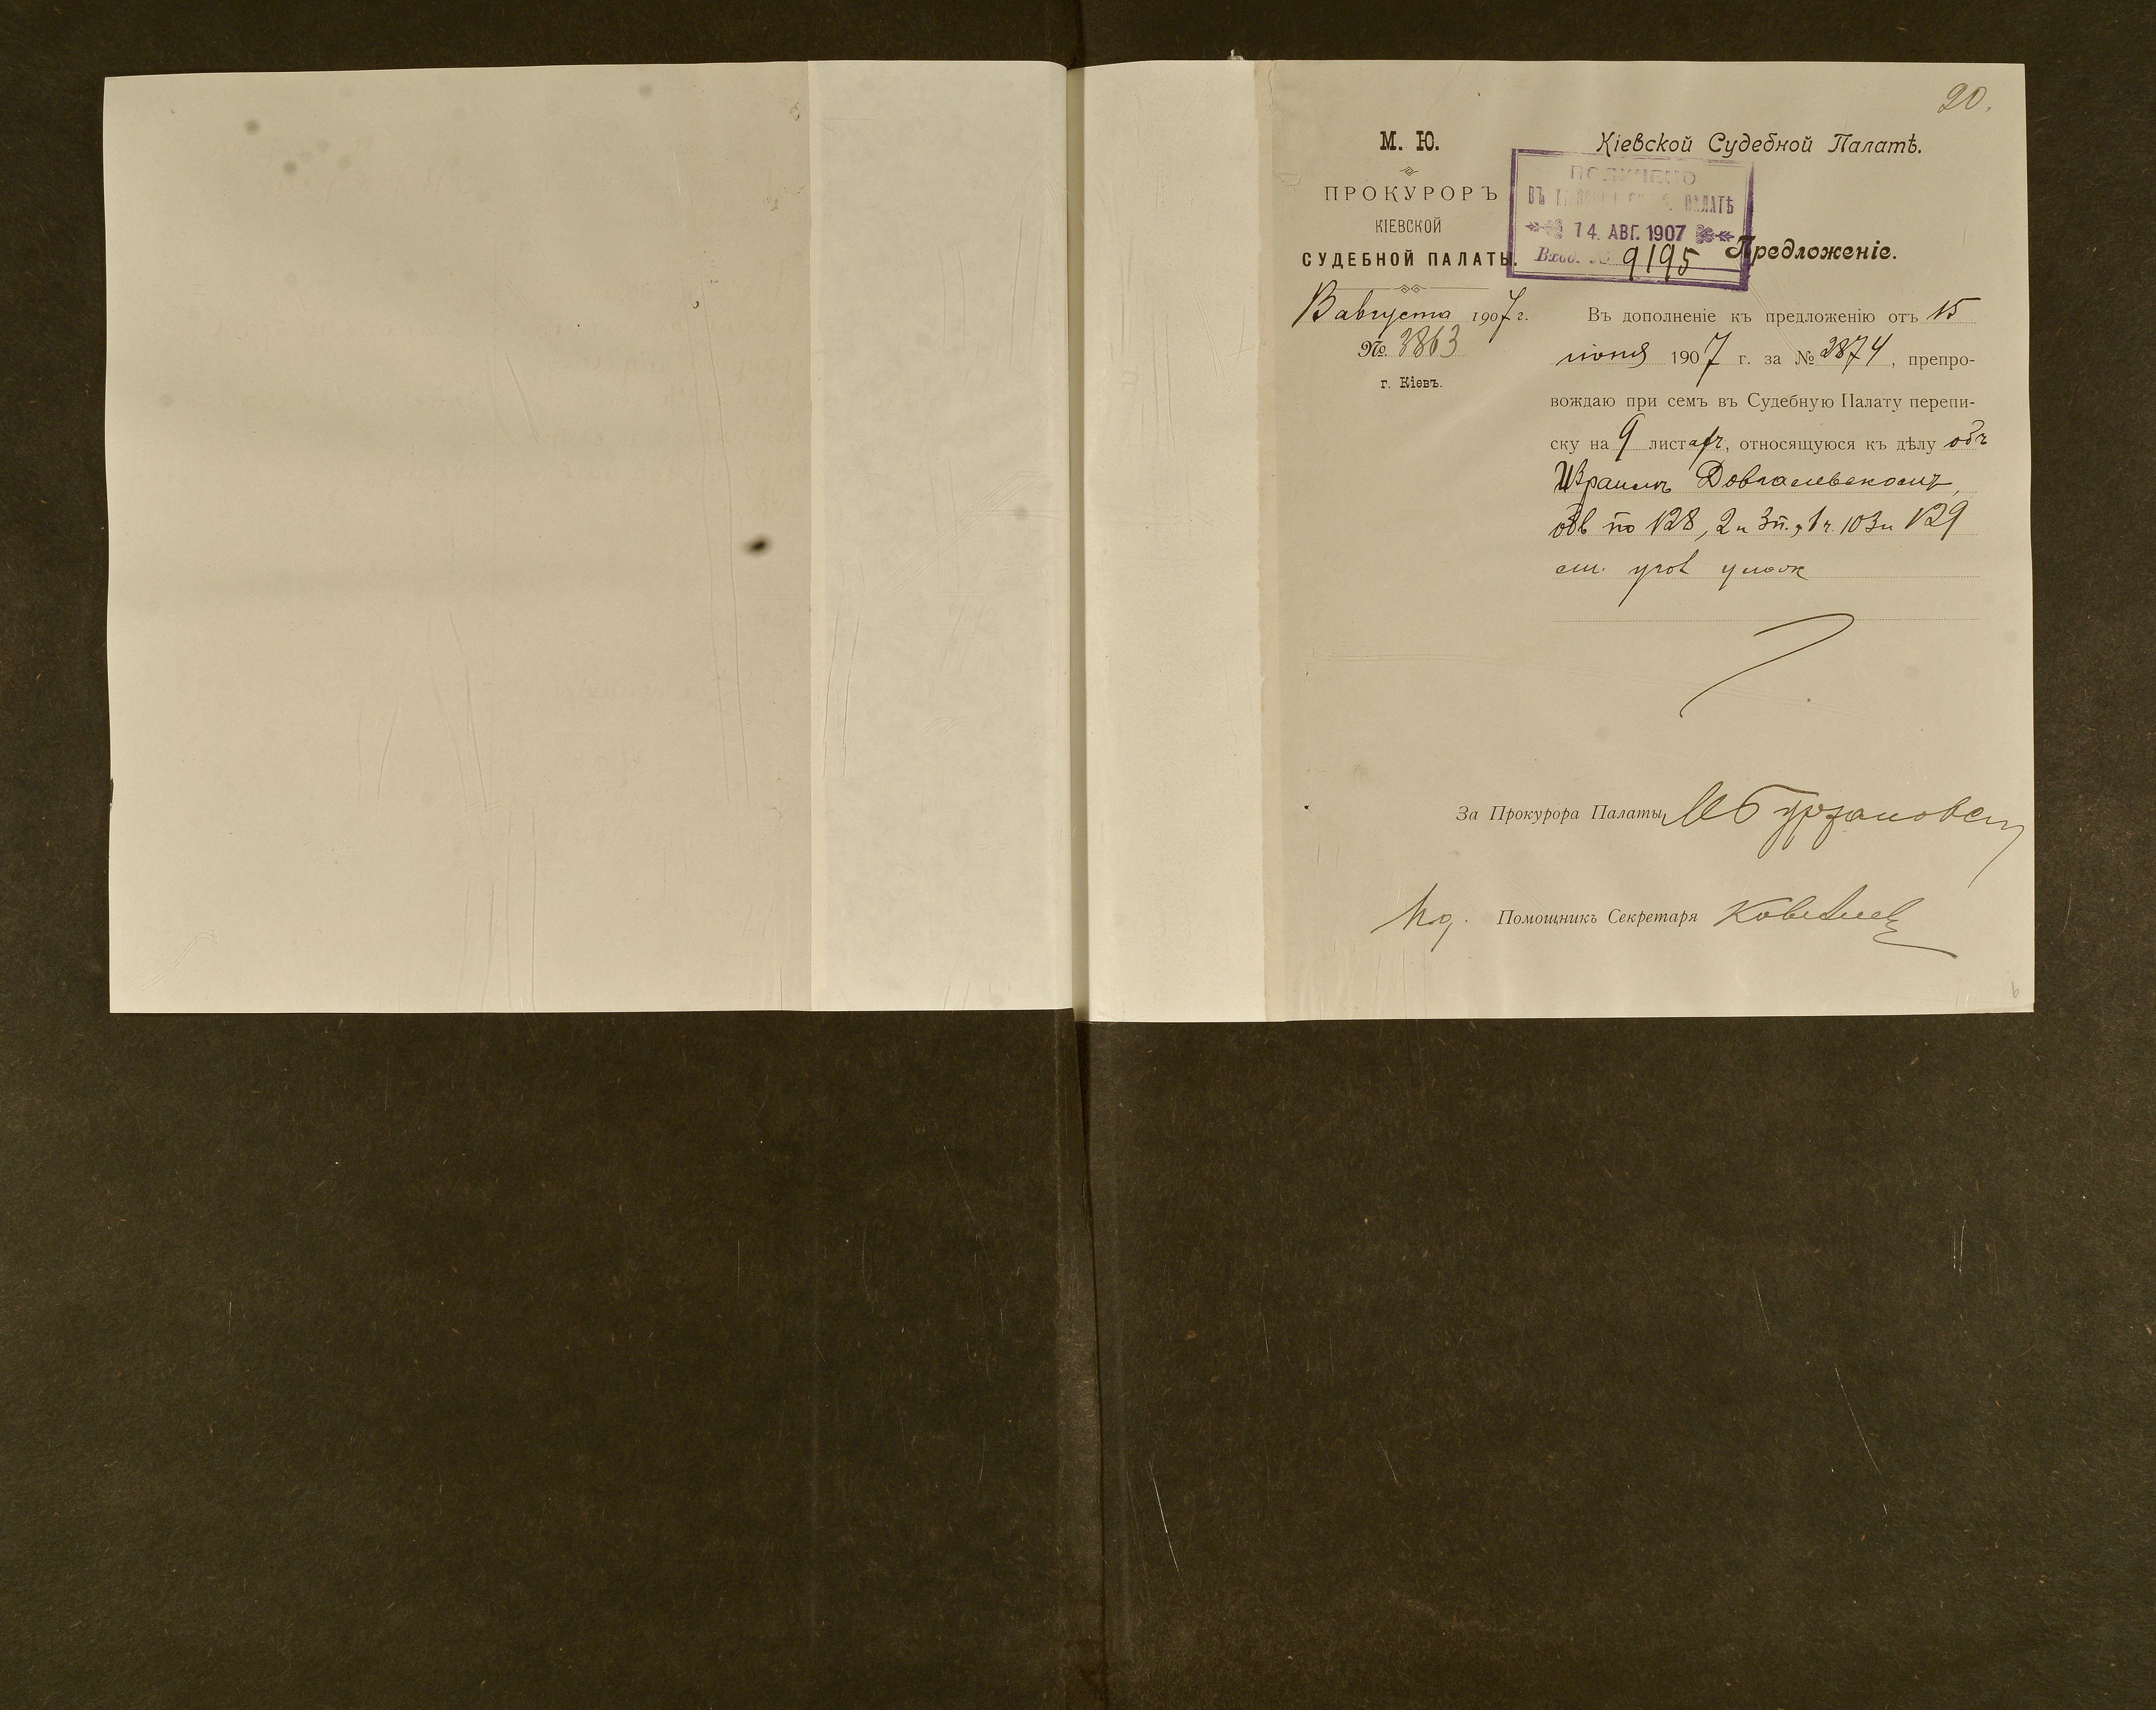 20.
М. Ю.
ПРОКУРОРЪ
КІЕВСКОЙ
СУДЕБНОЙ ПАЛАТЫ.
13 августа 1907 г.
№ 3863
г. Кіевъ.
Кіевской Судебной Палатѣ.
ПОЛУЧЕНО
ВЪ ПАЛАТѢ
14. АВГ. 1907
Вход. № 9195
Предложеніе.
Въ дополненіе къ предложенію отъ 15
іюня 1907 г. за № 2874, препро-
вождаю при семъ въ Судебную Палату перепи-
ску на 9 листахъ, относящуюся къ дѣлу объ
Израилѣ Довгалевскомъ,
обв по 128, 2 и 3 п., 1 ч. 103 и 129
ст. угов улож
За Прокурора Палаты
Помощникъ Секретаря